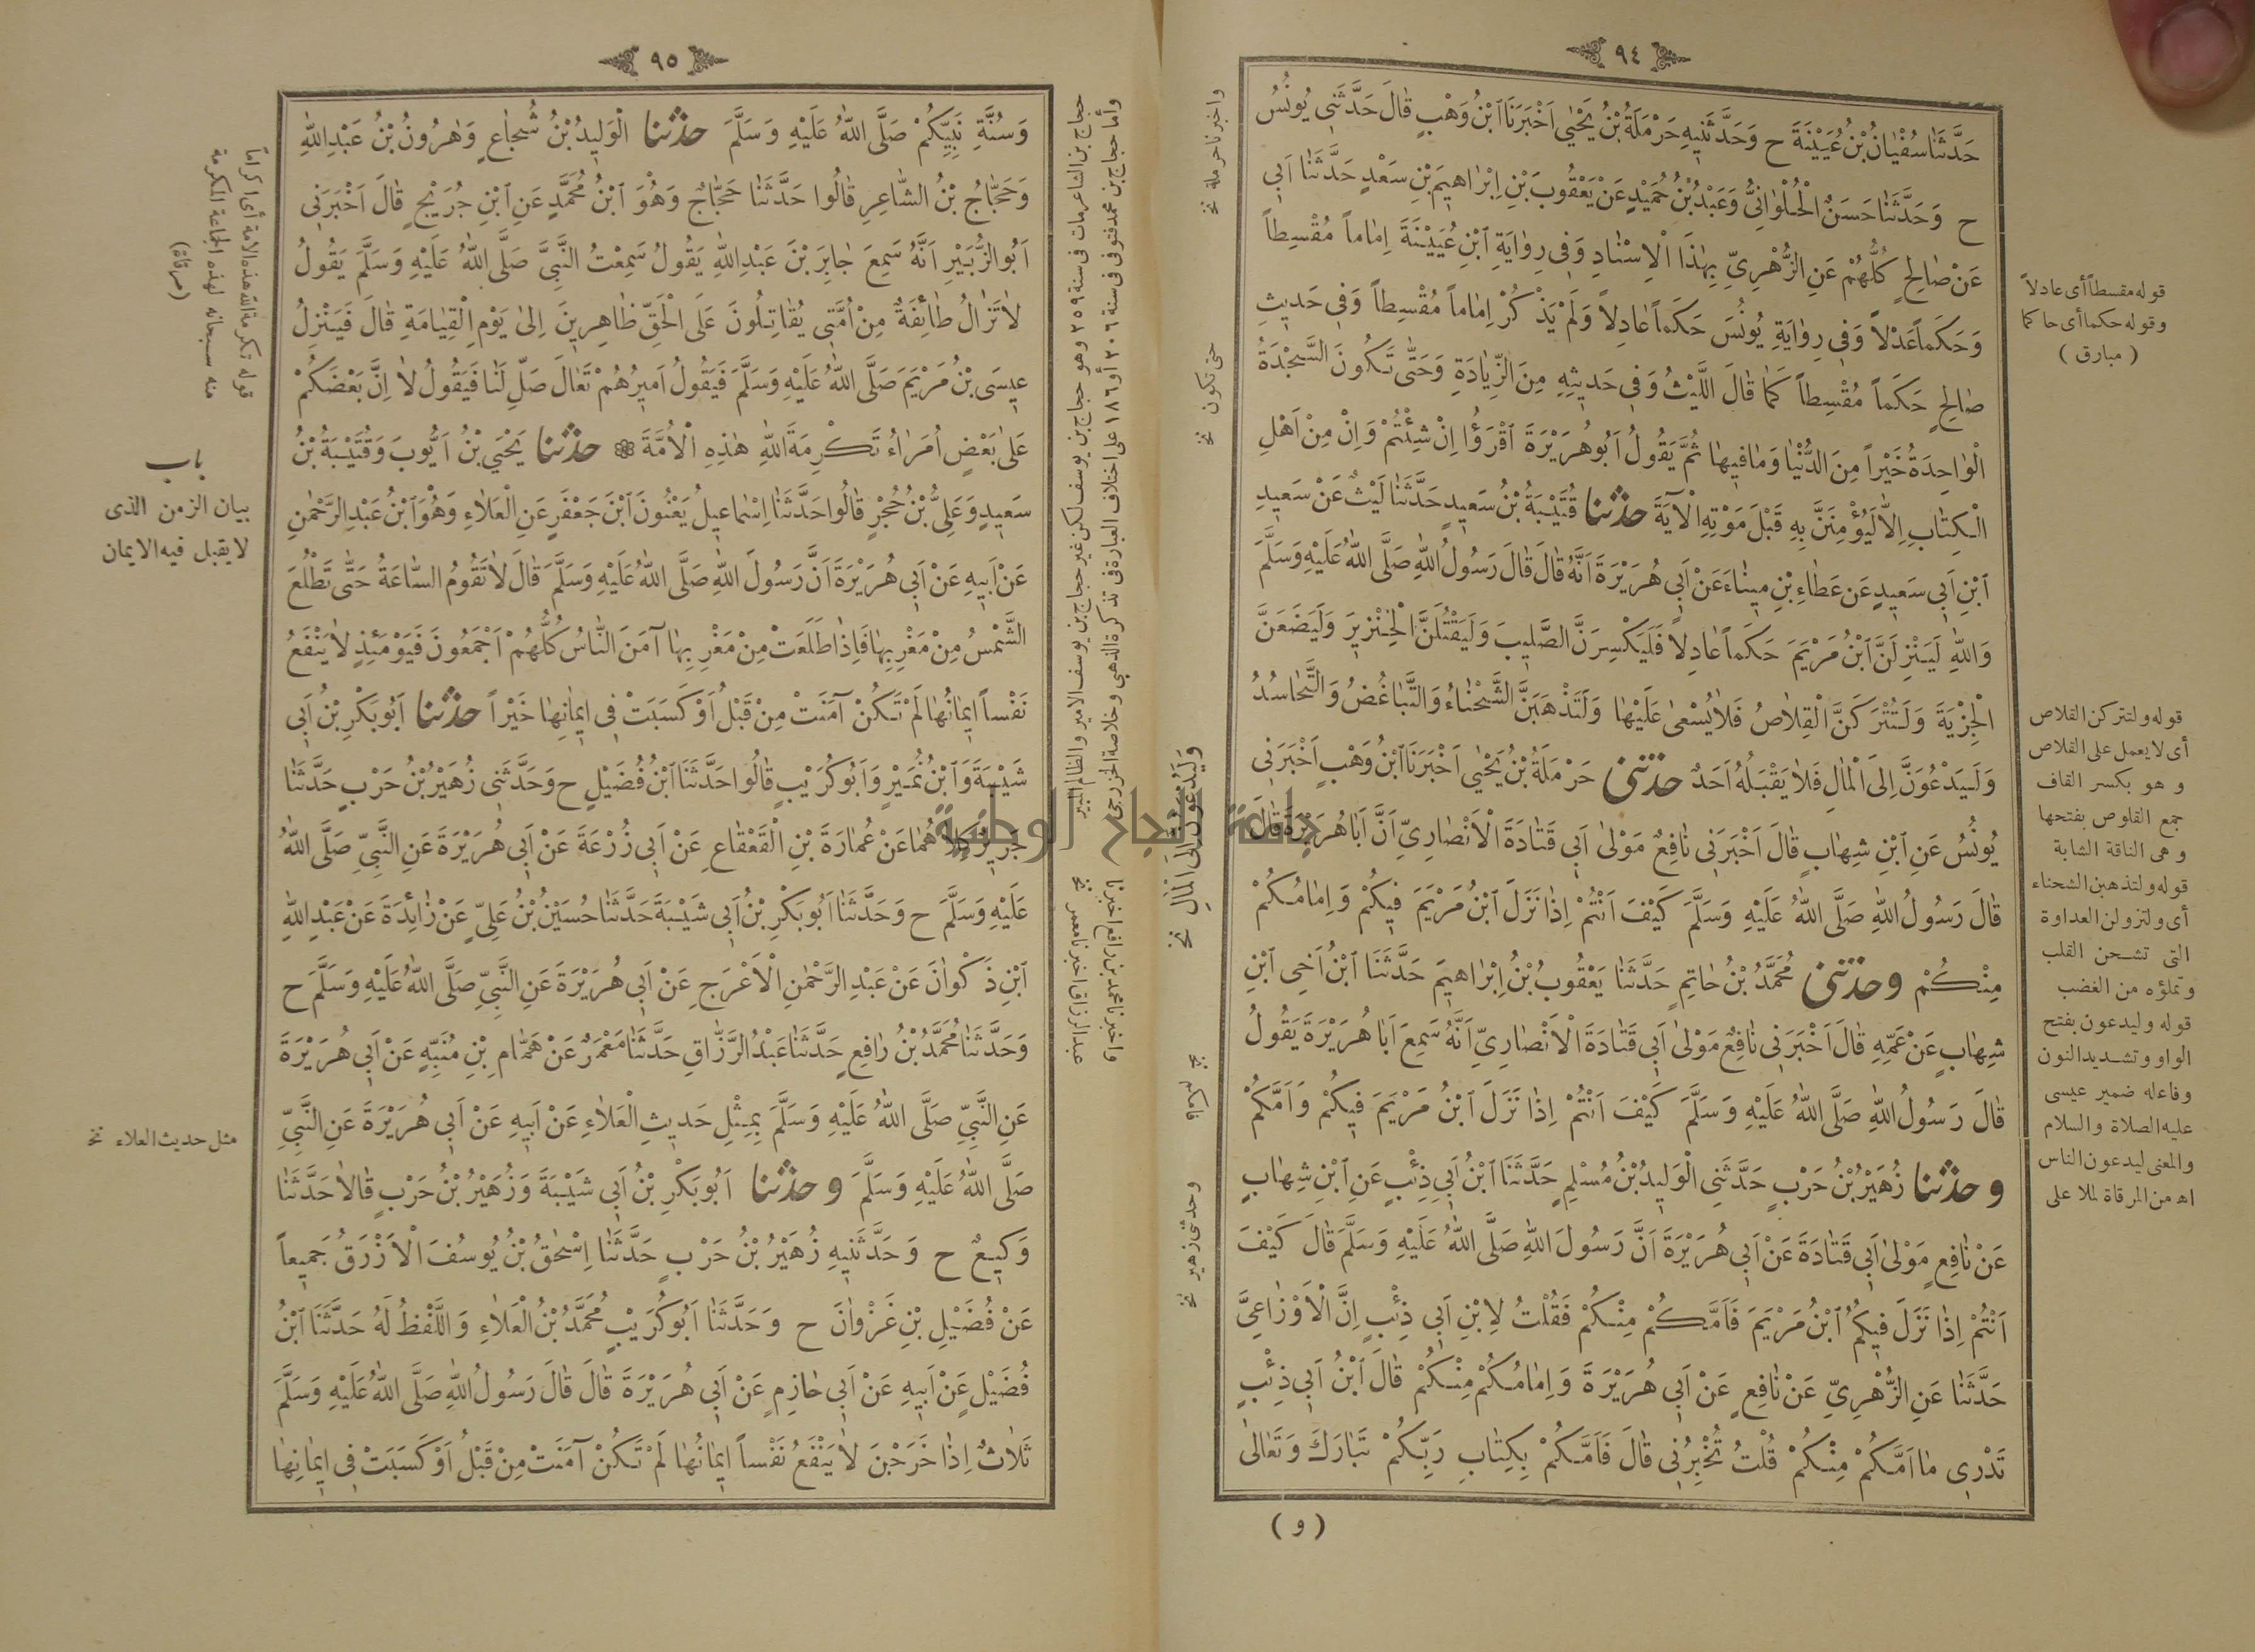 ٩٤
حَدَّثَنَا سُفْيَانُ بْنُ عُيَيْنَةَ ح وَحَدَّثَنِيهِ حَرْمَلَةُ بْنُ يَحْيٰى اَخْبَرَنَا ابْنُ وَهْبٍ قَالَ حَدَّثَنِي يُونُسُ
ح وَحَدَّثَنَا حَسَنٌ الْحُلْوَانِيُّ وَعَبْدُ بْنُ حُمَيْدٍ عَنْ يَعْقُوبَ بْنِ اِبْرَاهِيمَ بْنِ سَعْدٍ حَدَّثَنَا اَبِي
عَنْ صَالِحٍ كُلُّهُمْ عَنِ الزُّهْرِيِّ بِهٰذَا الْاِسْنَادِ وَفِي رِوَايَةِ ابْنِ عُيَيْنَةَ اِمَاماً مُقْسِطاً
وَحَكَماً عَدْلاً وَفِي رِوَايَةِ يُونُسَ حَكَماً عَادِلاً وَلَمْ يَذْكُرْ اِمَاماً مُقْسِطاً وَفِي حَدِيثِ
صَالِحٍ حَكَماً مُقْسِطاً كَمَا قَالَ اللَّيْثُ وَفِي حَدِيثِهِ مِنَ الزِّيَادَةِ وَحَتّٰى تَكُونَ السَّجْدَةُ
الْوَاحِدَةُ خَيْراً مِنَ الدُّنْيَا وَمَا فِيهَا ثُمَّ يَقُولُ اَبُو هُرَيْرَةَ اقْرَؤُا اِنْ شِئْتُمْ وَاِنْ مِنْ اَهْلِ
الْكِتَابِ اِلَّا لَيُؤْمِنَنَّ بِهِ قَبْلَ مَوْتِهِ الْآيَةَ حدثنا قُتَيْبَةُ بْنُ سَعِيدٍ حَدَّثَنَا لَيْثٌ عَنْ سَعِيدِ
ابْنِ اَبِي سَعِيدٍ عَنْ عَطَاءِ بْنِ مِينَاءَ عَنْ اَبِي هُرَيْرَةَ اَنَّهُ قَالَ قَالَ رَسُولُ اللّٰهِ صَلَّى اللّٰهُ عَلَيْهِ وَسَلَّمَ
وَاللّٰهِ لَيَنْزِلَنَّ ابْنُ مَرْيَمَ حَكَماً عَادِلاً فَلَيَكْسِرَنَّ الصَّلِيبَ وَلَيَقْتُلَنَّ الْخِنْزِيرَ وَلَيَضَعَنَّ
الْجِزْيَةَ وَلَتُتْرَكَنَّ الْقِلَاصُ فَلَا يُسْعٰى عَلَيْهَا وَلَتَذْهَبَنَّ الشَّحْنَاءُ وَالتَّبَاغُضُ وَالتَّحَاسُدُ
وَلَيَدْعُوَنَّ اِلَى الْمَالِ فَلَا يَقْبَلُهُ اَحَدٌ حدثنى حَرْمَلَةُ بْنُ يَحْيٰى اَخْبَرَنَا ابْنُ وَهْبٍ اَخْبَرَنِي
يُونُسُ عَنِ ابْنِ شِهَابٍ قَالَ اَخْبَرَنِي نَافِعٌ مَوْلٰى اَبِي قَتَادَةَ الْاَنْصَارِيِّ اَنَّ اَبَا هُرَيْرَةَ قَالَ
قَالَ رَسُولُ اللّٰهِ صَلَّى اللّٰهُ عَلَيْهِ وَسَلَّمَ كَيْفَ اَنْتُمْ اِذَا نَزَلَ ابْنُ مَرْيَمَ فِيكُمْ وَاِمَامُكُمْ
مِنْكُمْ وحدثنى مُحَمَّدُ بْنُ حَاتِمٍ حَدَّثَنَا يَعْقُوبُ بْنُ اِبْرَاهِيمَ حَدَّثَنَا ابْنُ اَخِي ابْنِ
شِهَابٍ عَنْ عَمِّهِ قَالَ اَخْبَرَنِي نَافِعٌ مَوْلٰى اَبِي قَتَادَةَ الْاَنْصَارِيِّ اَنَّهُ سَمِعَ اَبَا هُرَيْرَةَ يَقُولُ
قَالَ رَسُولُ اللّٰهِ صَلَّى اللّٰهُ عَلَيْهِ وَسَلَّمَ كَيْفَ اَنْتُمْ اِذَا نَزَلَ ابْنُ مَرْيَمَ فِيكُمْ وَاَمَّكُمْ
وحدثنا زُهَيْرُ بْنُ حَرْبٍ حَدَّثَنِي الْوَلِيدُ بْنُ مُسْلِمٍ حَدَّثَنَا ابْنُ اَبِي ذِئْبٍ عَنِ ابْنِ شِهَابٍ
عَنْ نَافِعٍ مَوْلٰى اَبِي قَتَادَةَ عَنْ اَبِي هُرَيْرَةَ اَنَّ رَسُولَ اللّٰهِ صَلَّى اللّٰهُ عَلَيْهِ وَسَلَّمَ قَالَ كَيْفَ
اَنْتُمْ اِذَا نَزَلَ فِيكُمُ ابْنُ مَرْيَمَ فَاَمَّكُمْ مِنْكُمْ فَقُلْتُ لِابْنِ اَبِي ذِئْبٍ اِنَّ الْاَوْزَاعِيَّ
حَدَّثَنَا عَنِ الزُّهْرِيِّ عَنْ نَافِعٍ عَنْ اَبِي هُرَيْرَةَ وَاِمَامُكُمْ مِنْكُمْ قَالَ ابْنُ اَبِي ذِئْبٍ
تَدْرِي مَا اَمَّكُمْ مِنْكُمْ قُلْتُ تُخْبِرُنِي قَالَ فَاَمَّكُمْ بِكِتَابِ رَبِّكُمْ تَبَارَكَ وَتَعَالٰى
( و )
قوله مقسطاً أى عادلاً
وقوله حكما أى حاكما
( مبارق )
قوله ولتتركن القلاص
أى لا يعمل على القلاص
وهو بكسر القاف
جمع القلوص بفتحها
وهى الناقة الشابة
قوله ولتذهبن الشحناء
أى ولتزولن العداوة
التى تشحن القلب
وتملؤه من الغضب
قوله وليدعون بفتح
الواو وتشديد النون
وفاعله ضمير عيسى
عليه الصلاة والسلام
والمعنى ليدعون الناس
اه من المرقاة لملا على
واخبرنا حرملة نخ
حتى تكون نخ
وَلَيُدْعَوُنَّ اِلَى الْمَالِ نخ
وحدثنى زهير نخ
جامعة النجاح الوطنية
٩٥
وَسُنَّةِ نَبِيِّكُمْ صَلَّى اللّٰهُ عَلَيْهِ وَسَلَّمَ حدثنا الْوَلِيدُ بْنُ شُجَاعٍ وَهٰرُونُ بْنُ عَبْدِ اللّٰهِ
وَحَجَّاجُ بْنُ الشَّاعِرِ قَالُوا حَدَّثَنَا حَجَّاجٌ وَهُوَ ابْنُ مُحَمَّدٍ عَنِ ابْنِ جُرَيْجٍ قَالَ اَخْبَرَنِي
اَبُو الزُّبَيْرِ اَنَّهُ سَمِعَ جَابِرَ بْنَ عَبْدِ اللّٰهِ يَقُولُ سَمِعْتُ النَّبِيَّ صَلَّى اللّٰهُ عَلَيْهِ وَسَلَّمَ يَقُولُ
لَا تَزَالُ طَائِفَةٌ مِنْ اُمَّتِي يُقَاتِلُونَ عَلَى الْحَقِّ ظَاهِرِينَ اِلٰى يَوْمِ الْقِيَامَةِ قَالَ فَيَنْزِلُ
عِيسَى بْنُ مَرْيَمَ صَلَّى اللّٰهُ عَلَيْهِ وَسَلَّمَ فَيَقُولُ اَمِيرُهُمْ تَعَالَ صَلِّ لَنَا فَيَقُولُ لَا اِنَّ بَعْضَكُمْ
عَلٰى بَعْضٍ اُمَرَاءُ تَكْرِمَةَ اللّٰهِ هٰذِهِ الْاُمَّةَ ❁ حدثنا يَحْيَى بْنُ اَيُّوبَ وَقُتَيْبَةُ بْنُ
سَعِيدٍ وَعَلِيُّ بْنُ حُجْرٍ قَالُوا حَدَّثَنَا اِسْمَاعِيلُ يَعْنُونَ ابْنَ جَعْفَرٍ عَنِ الْعَلَاءِ وَهُوَ ابْنُ عَبْدِ الرَّحْمٰنِ
عَنْ اَبِيهِ عَنْ اَبِي هُرَيْرَةَ اَنَّ رَسُولَ اللّٰهِ صَلَّى اللّٰهُ عَلَيْهِ وَسَلَّمَ قَالَ لَا تَقُومُ السَّاعَةُ حَتّٰى تَطْلُعَ
الشَّمْسُ مِنْ مَغْرِبِهَا فَاِذَا طَلَعَتْ مِنْ مَغْرِبِهَا آمَنَ النَّاسُ كُلُّهُمْ اَجْمَعُونَ فَيَوْمَئِذٍ لَا يَنْفَعُ
نَفْساً اِيمَانُهَا لَمْ تَكُنْ آمَنَتْ مِنْ قَبْلُ اَوْ كَسَبَتْ فِي اِيمَانِهَا خَيْراً حدثنا اَبُو بَكْرِ بْنُ اَبِي
شَيْبَةَ وَابْنُ نُمَيْرٍ وَاَبُو كُرَيْبٍ قَالُوا حَدَّثَنَا ابْنُ فُضَيْلٍ ح وَحَدَّثَنِي زُهَيْرُ بْنُ حَرْبٍ حَدَّثَنَا
جَرِيرٌ كِلَاهُمَا عَنْ عُمَارَةَ بْنِ الْقَعْقَاعِ عَنْ اَبِي زُرْعَةَ عَنْ اَبِي هُرَيْرَةَ عَنِ النَّبِيِّ صَلَّى اللّٰهُ
عَلَيْهِ وَسَلَّمَ ح وَحَدَّثَنَا اَبُو بَكْرِ بْنُ اَبِي شَيْبَةَ حَدَّثَنَا حُسَيْنُ بْنُ عَلِيٍّ عَنْ زَائِدَةَ عَنْ عَبْدِ اللّٰهِ
ابْنِ ذَكْوَانَ عَنْ عَبْدِ الرَّحْمٰنِ الْاَعْرَجِ عَنْ اَبِي هُرَيْرَةَ عَنِ النَّبِيِّ صَلَّى اللّٰهُ عَلَيْهِ وَسَلَّمَ ح
وَحَدَّثَنَا مُحَمَّدُ بْنُ رَافِعٍ حَدَّثَنَا عَبْدُ الرَّزَّاقِ حَدَّثَنَا مَعْمَرٌ عَنْ هَمَّامِ بْنِ مُنَبِّهٍ عَنْ اَبِي هُرَيْرَةَ
عَنِ النَّبِيِّ صَلَّى اللّٰهُ عَلَيْهِ وَسَلَّمَ بِمِثْلِ حَدِيثِ الْعَلَاءِ عَنْ اَبِيهِ عَنْ اَبِي هُرَيْرَةَ عَنِ النَّبِيِّ
صَلَّى اللّٰهُ عَلَيْهِ وَسَلَّمَ وحدثنا اَبُو بَكْرِ بْنُ اَبِي شَيْبَةَ وَزُهَيْرُ بْنُ حَرْبٍ قَالَا حَدَّثَنَا
وَكِيعٌ ح وَحَدَّثَنِيهِ زُهَيْرُ بْنُ حَرْبٍ حَدَّثَنَا اِسْحٰقُ بْنُ يُوسُفَ الْاَزْرَقُ جَمِيعاً
عَنْ فُضَيْلِ بْنِ غَزْوَانَ ح وَحَدَّثَنَا اَبُو كُرَيْبٍ مُحَمَّدُ بْنُ الْعَلَاءِ وَاللَّفْظُ لَهُ حَدَّثَنَا ابْنُ
فُضَيْلٍ عَنْ اَبِيهِ عَنْ اَبِي حَازِمٍ عَنْ اَبِي هُرَيْرَةَ قَالَ قَالَ رَسُولُ اللّٰهِ صَلَّى اللّٰهُ عَلَيْهِ وَسَلَّمَ
ثَلَاثٌ اِذَا خَرَجْنَ لَا يَنْفَعُ نَفْساً اِيمَانُهَا لَمْ تَكُنْ آمَنَتْ مِنْ قَبْلُ اَوْ كَسَبَتْ فِي اِيمَانِهَا
حجاج بن الشاعر مات فى سنة ٢٥٩ وهو حجاج بن يوسف لكن غير حجاج بن يوسف الامير والظالم المبير
وأما حجاج بن محمد فتوفى فى سنة ٢٠٦ أو ١٨٦ على اختلاف العبارة فى تذكرة الذهبى وخلاصة الخزرجى
واخبرنا محمد بن رافع اخبرنا
عبد الرزاق اخبرنا معمر نخ
قوله تكرمة الله هذه الامة أى اكراماً
منه سبحانه لهذه الجماعة المكرمة
(مرقاة)
باب
بيان الزمن الذى
لا يقبل فيه الايمان
مثل حديث العلاء نخ